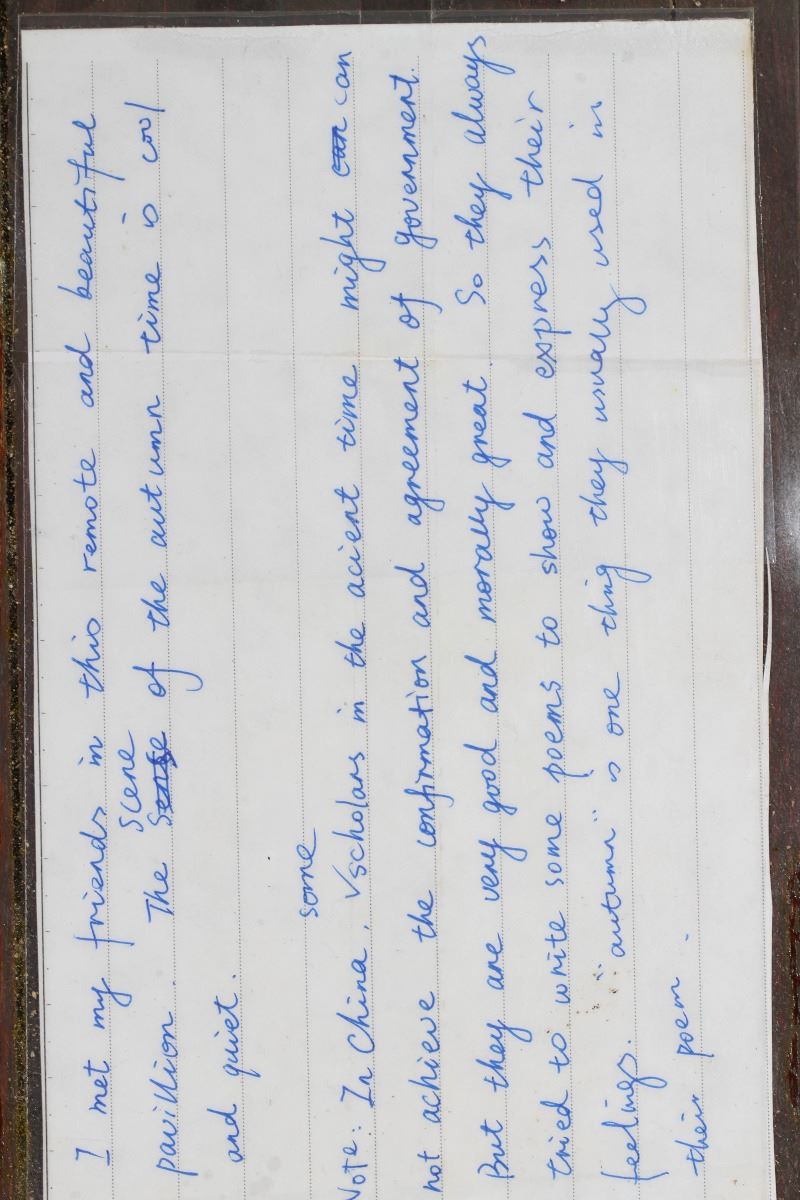 I met my friends in this remote and beautiful
pavillion. The Scene of the autumn time is cool
and quiet.
Note: In China, some scholars in the acient time might can
not achieve the confirmation and agreement of government.
But they are very good and morally great. So they always
tried to write some poems to show and express their
feelings. "autumn" is one thing they usually used in
their poem.